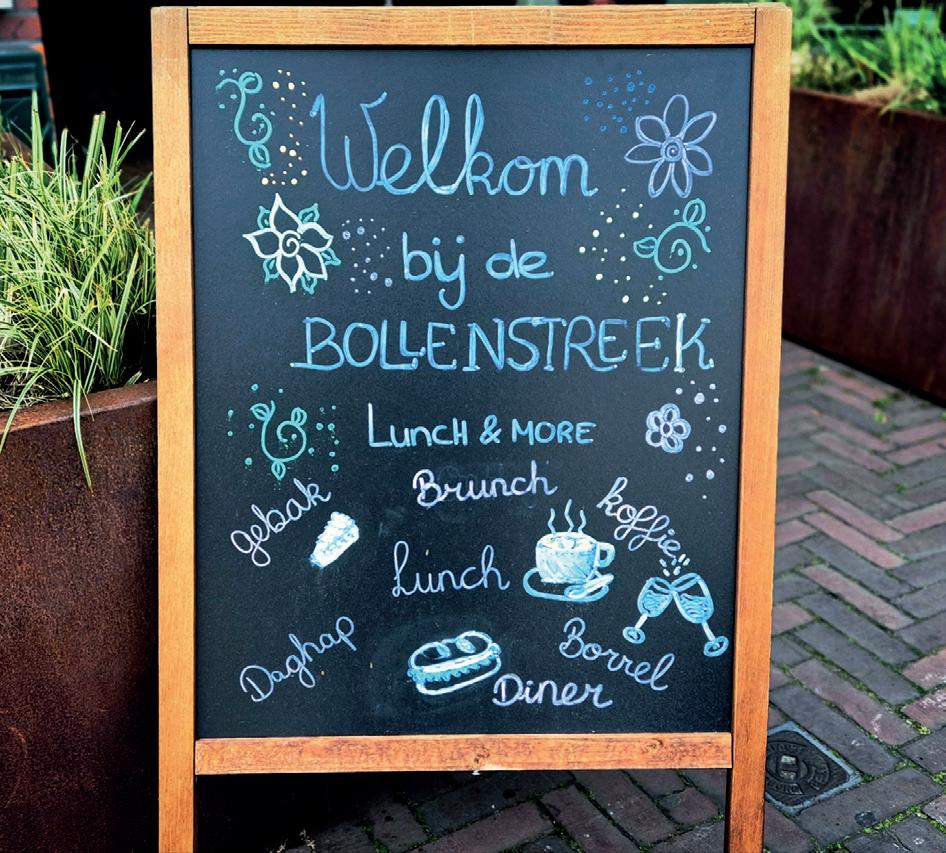 Welkom
bij de
BOLLENSTREEK
LUNCH & MORE
Brunch
gebak
koffie
Lunch
Daghap
Borrel
Diner